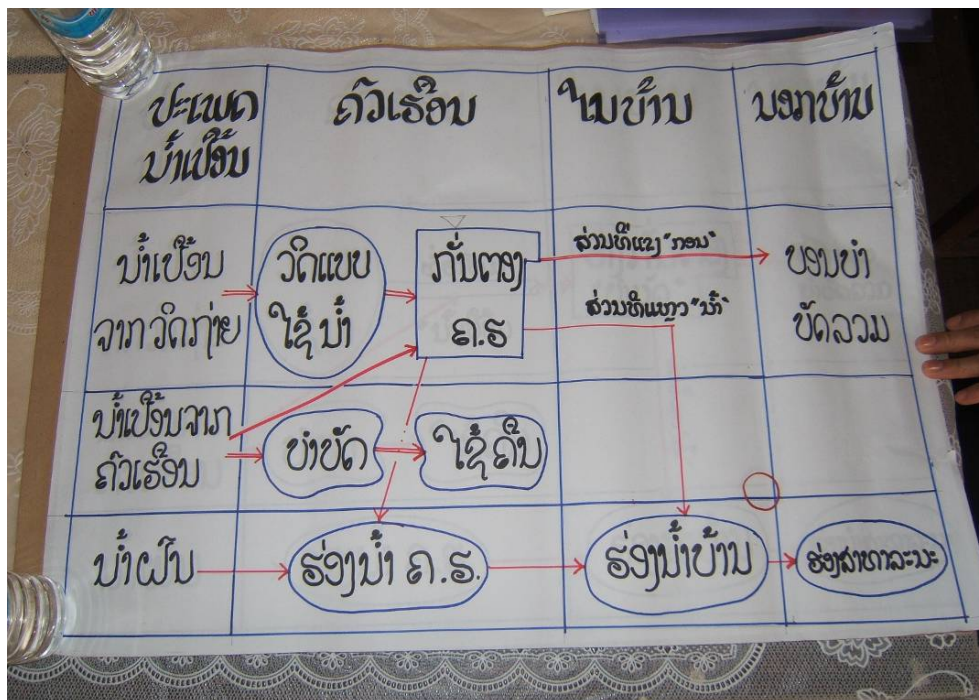 ປະເພດ
ນ້ຳເປື້ອນ
ຄົວເຮືອນ
ໃນບ້ານ
ນອກບ້ານ
ນ້ຳເປື້ອນ
ຈາກວິດຖ່າຍ
ວິດແບບ
ໃຊ້ ນ້ຳ
ກັ່ນຕອງ
ຄ.ຮ
ສ່ວນທີ່ແຂງ "ກອນ"
ສ່ວນທີ່ແຫຼວ "ນ້ຳ"
ບ່ອນບຳ
ບັດລວມ
ນ້ຳເປື້ອນຈາກ
ຄົວເຮືອນ
ບຳບັດ
ໃຊ້ຄືນ
ນ້ຳຝົນ
ຮ່ອງນ້ຳ ຄ.ຮ.
ຮ່ອງນ້ຳບ້ານ
ຮ່ອງສາທາລະນະ